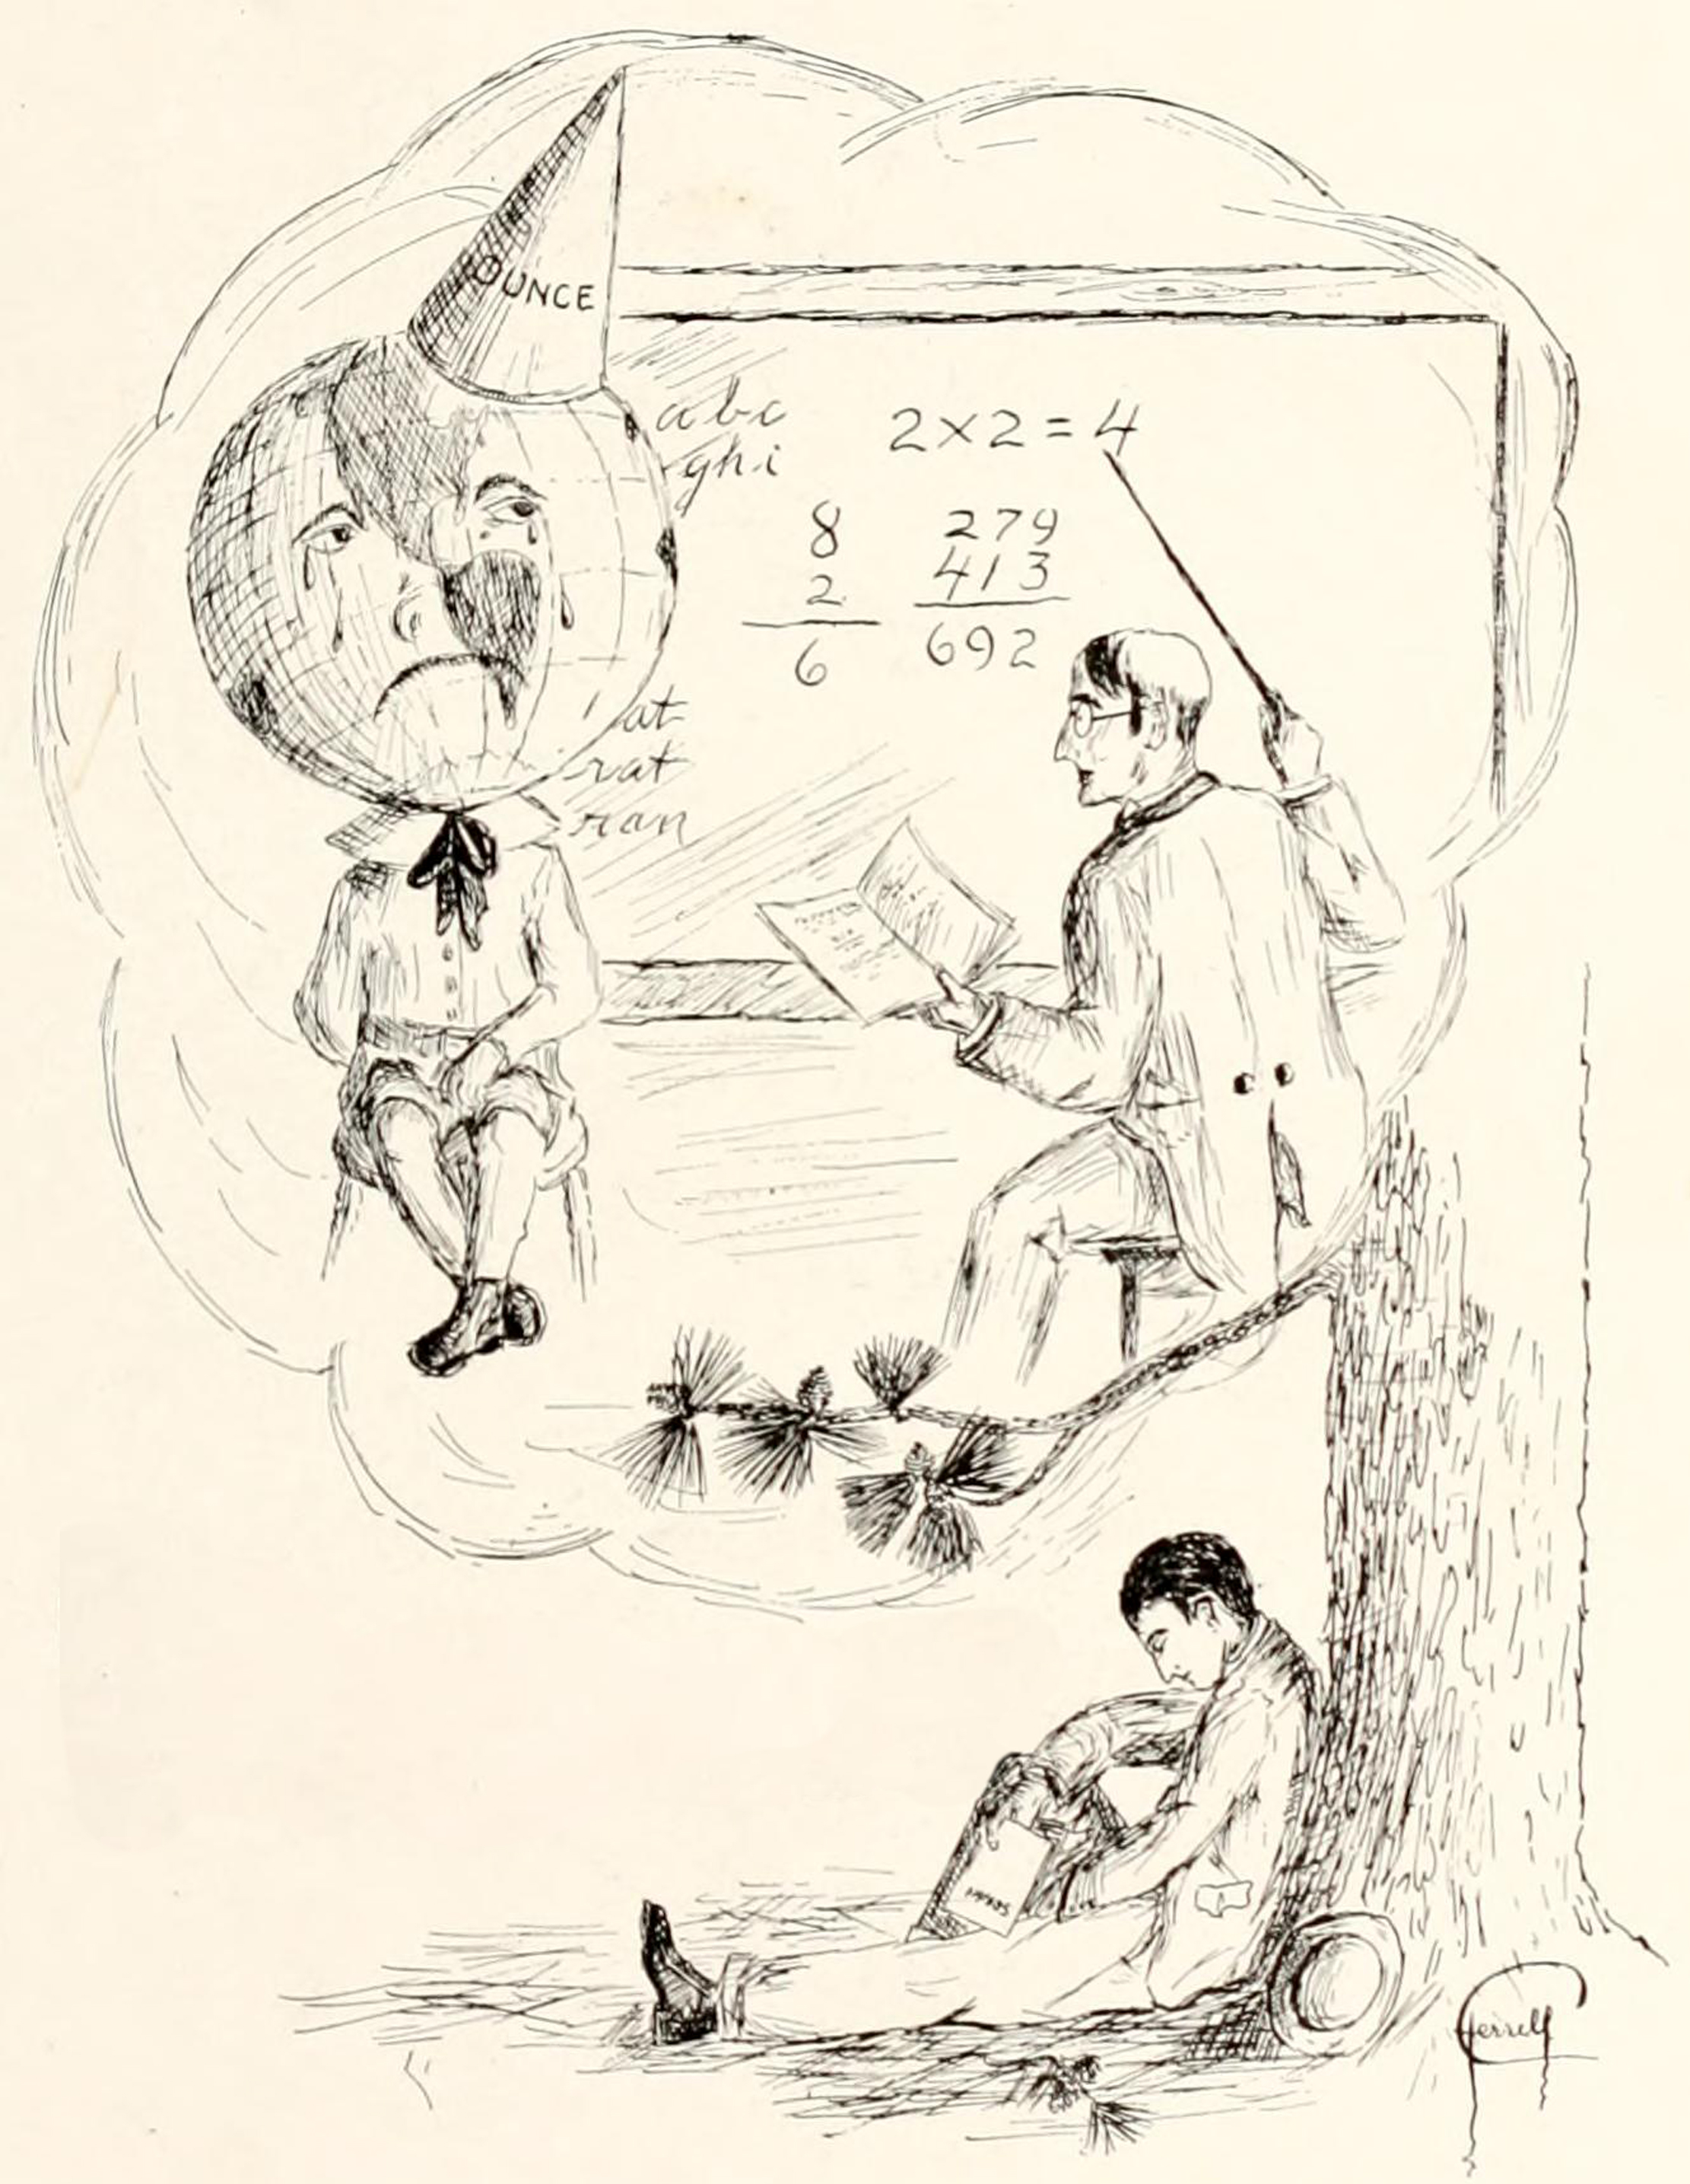 DUNCE
abc 2×2=4
ghi
8 279
2 413
6 692
at
rat
ran